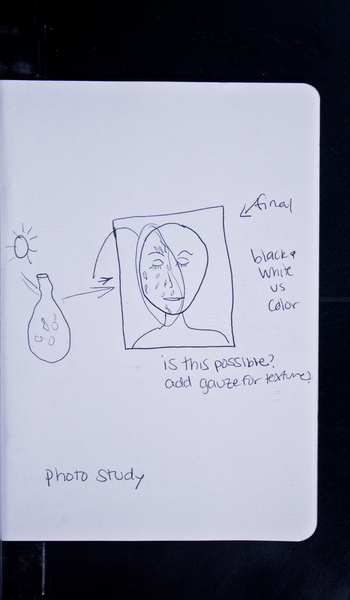 final
black &
white
vs
color
is this possible?
add gauze for texture?
photo study